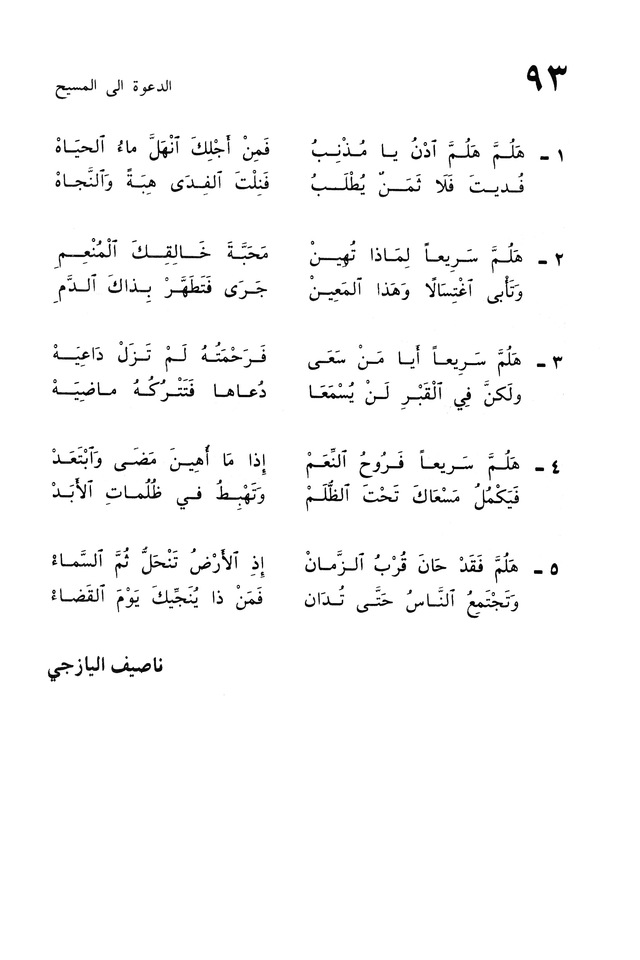 ٩٣
الدعوة الى المسيح
١ - هَلُمَّ هَلُمَّ ٱدْنُ يا مُذْنِبُ فَمِنْ أَجْلِكَ ٱنْهَلَّ ماءُ ٱلحيَاهْ
فُديتَ فَلَا ثَمَنٌ يُطْلَبُ فَنِلْتَ ٱلفِدَى هِبَةً وَٱلنَّجاهْ
٢ - هَلُمَّ سَرِيعاً لِمَاذا تُهِينْ مَحَبَّةَ خَالِقِكَ ٱلْمُنْعِمِ
وَتَأبى ٱغْتِسالًا وَهَذا ٱلمَعِينْ جَرَى فَتَطَهَّرْ بِذاكَ ٱلدَّمِ
٣ - هَلُمَّ سَرِيعاً أَيا مَنْ سَعَى فَرَحْمَتُهُ لَمْ تَزَلْ دَاعِيَهْ
ولَكنَّ فِي ٱلْقَبْرِ لَنْ يُسْمَعَا دُعاها فَتَتْرُكُهُ ماضِيَهْ
٤ - هَلُمَّ سَرِيعاً فَرُوحُ ٱلنِّعَمْ إِذا مَا أُهِينَ مَضَى وَٱبْتَعَدْ
فَيَكْمُلُ مَسْعَاكَ تَحْتَ ٱلظُّلَمْ وَتَهْبِطُ في ظُلُماتِ ٱلأَبَدْ
٥ - هَلُمَّ فَقَدْ حَانَ قُرْبُ ٱلزَّمانْ إِذِ ٱلأَرْضُ تَنْحَلُّ ثُمَّ ٱلسَّماءْ
وَتَجْتَمِعُ ٱلنَّاسُ حَتَّى تُدَان فَمَنْ ذا يُنَجِّيكَ يَوْمَ ٱلقَضاءْ
ناصيف اليازجي